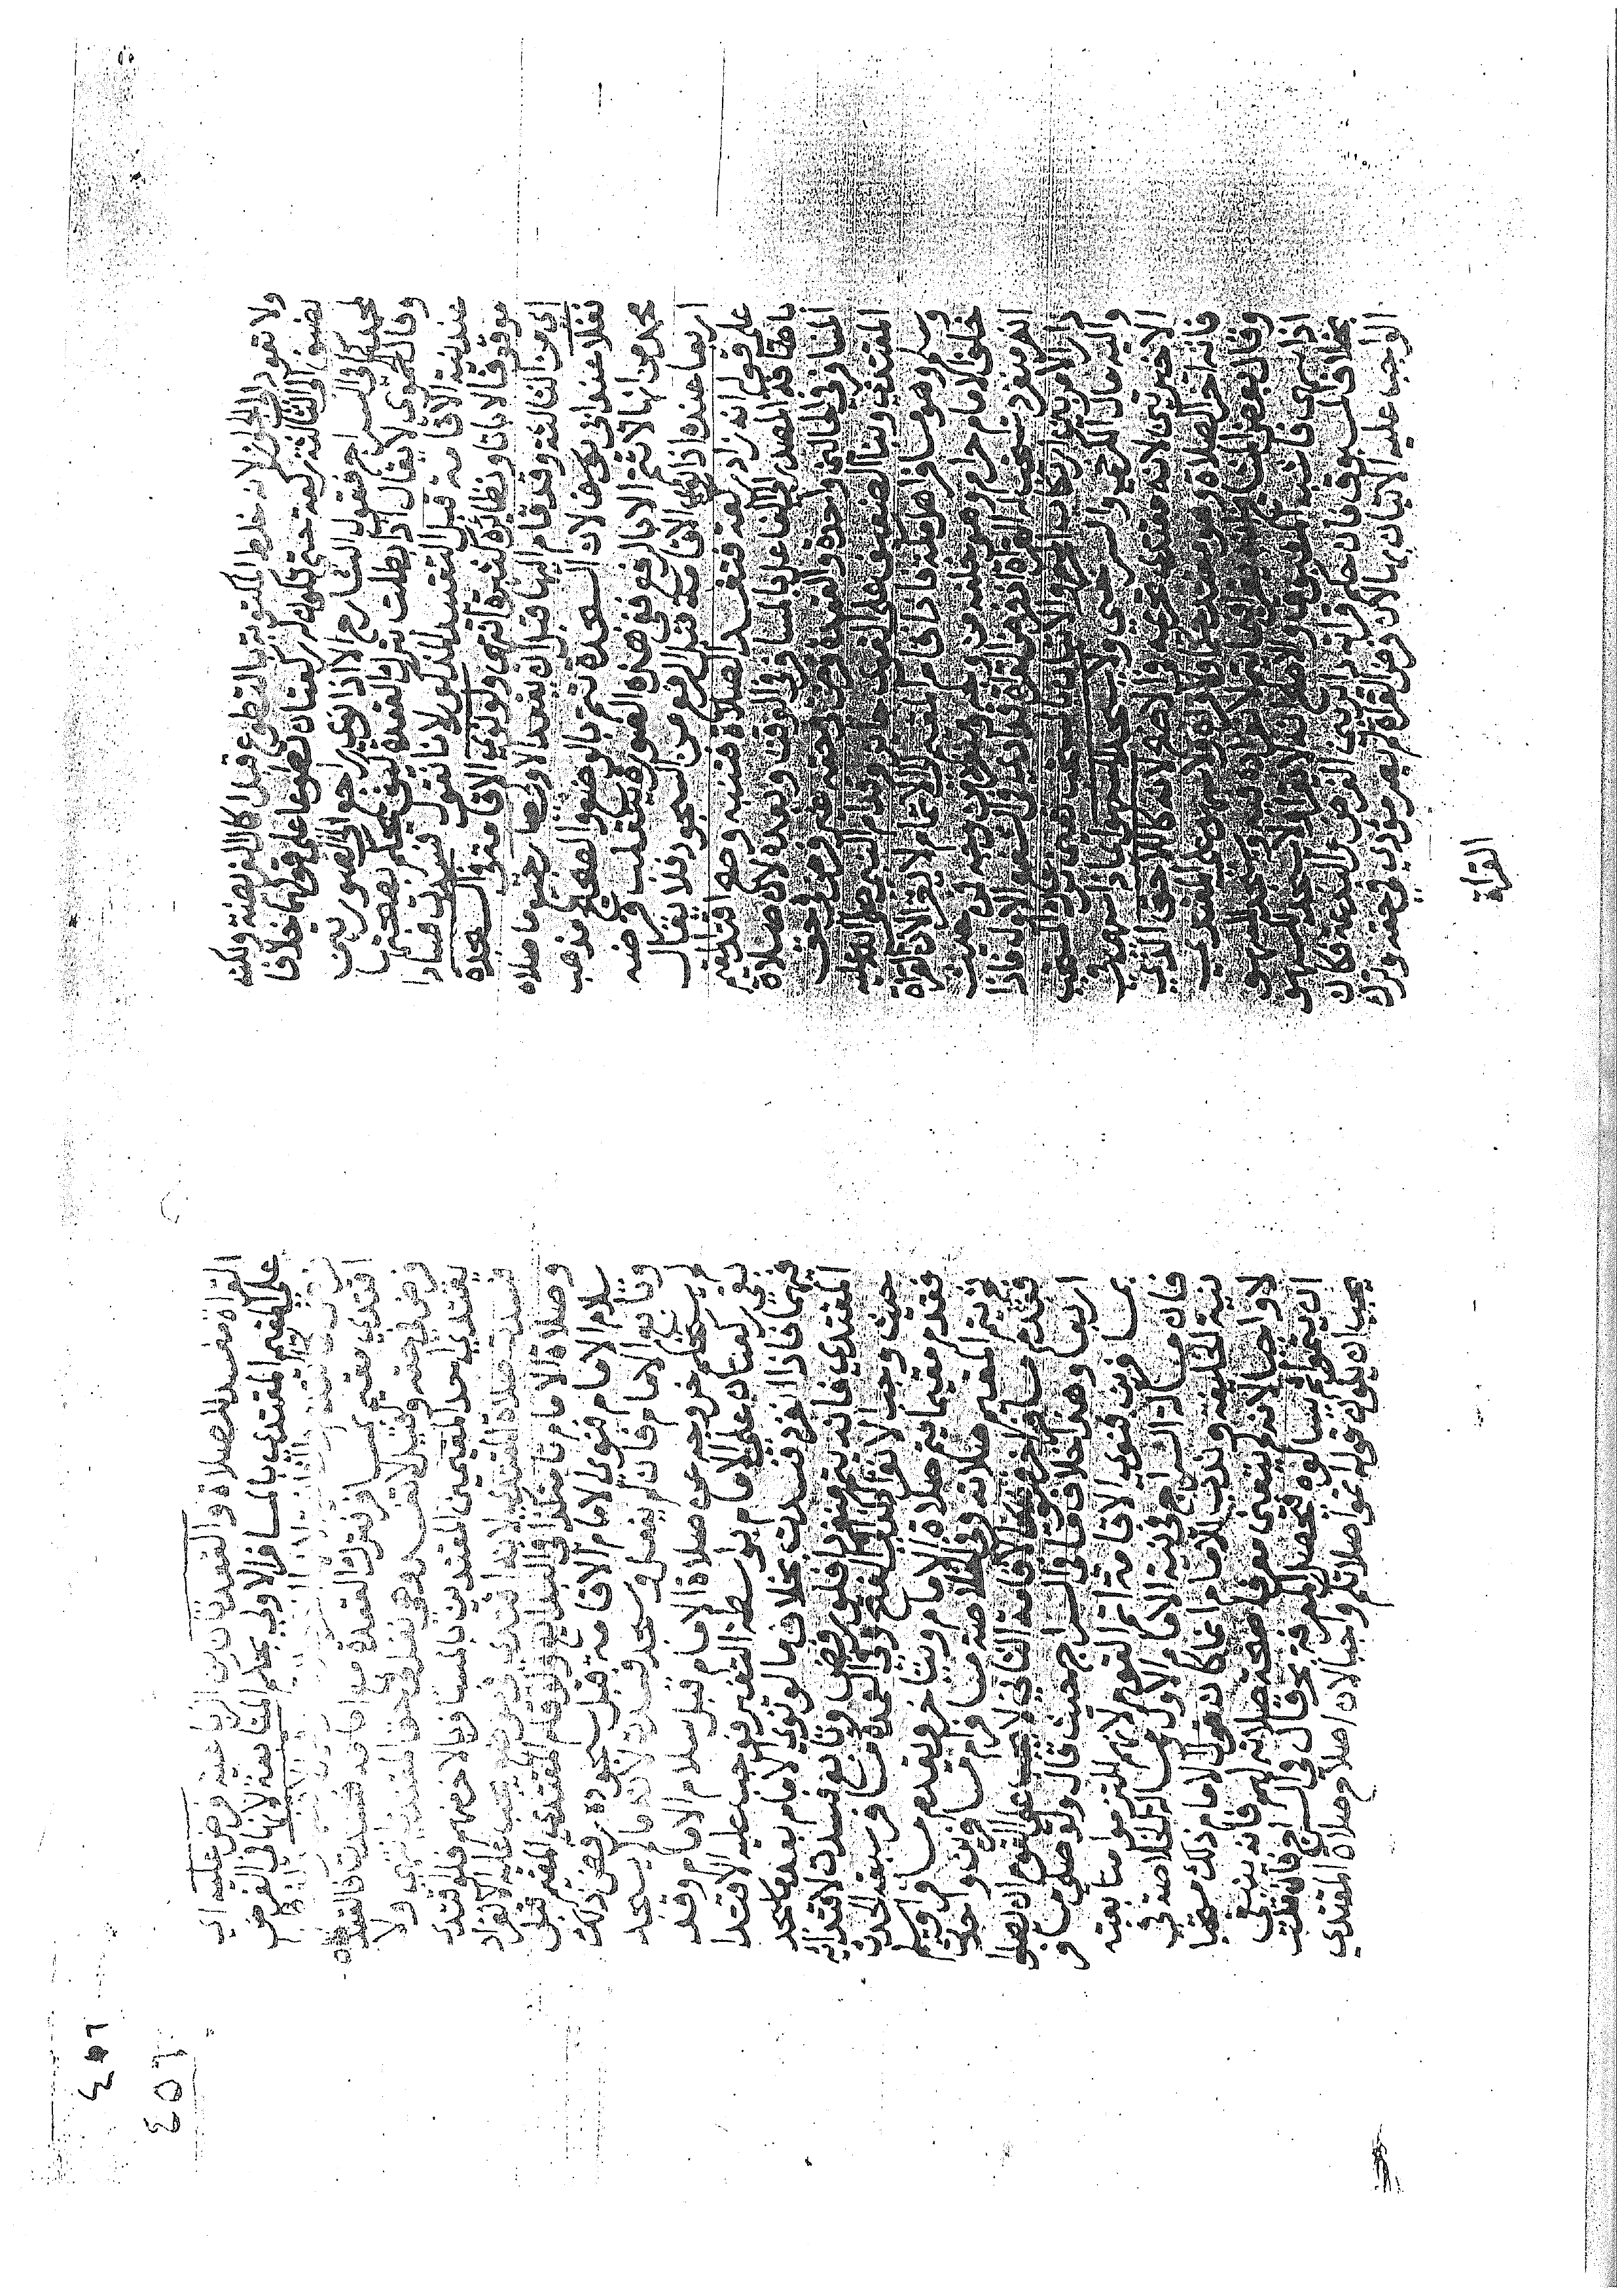 ولا تعود الى الجواز لانه خلط المكتوبة بالتطوع قبل اكمال الفريضة ولكنه
يضيف الى الثالثة ركعة حتى تكون له ركعتان تطوعا على قولهما خلافا
لمحمد كذا في السراج فقول الشارح الا اذا نوى راجع الى الصورتين
وقال الحموي لا يقال اذا بطلت بترك القعدة كيف يحكم بصحتها
عند نية الاقامة قبل التقييد المذكور لانا نقول فسدت فسادا
موقوفا لا باتا ونظائره كثيرة انتهى ولو نوى الاقامة والسجدة
اي من الثالثة وقد قام اليها قبل ان يقعد الاولى صار جميع ما صلاه
نفلا عند ابي يوسف لان السجدة تتم بالوضع والصحيح مذهب
محمد من انها لا تتم الا بالرفع ففي هذه الصورة ينقلب فرضه
اربعا عنده اذا نوى الاقامة قبل الرفع من السجود فلا يقال
على قوله انه زاد ركعة فتفسد الصلاة فتنبه وصح اقتدا
باضافة المصدر الى الفاعل بالمسافر في الوقت وبعده لان صلاة
المسافر في الحالتين واحدة والقعدة فرض في حقه غير فرض في حق
المقتدي وبناء الضعيف على القوي جائز وقد ام النبي صلى الله عليه
وسلم وهو مسافر اهل مكة فاذا قام المقيم الى الاتمام لا يقرا لان القراة
خلف الامام حرام وهو خلفه من وجه ومنفرد من وجه فمن حيث
انه منفرد تستحب له القراة لان فرض القراة قد ادي في الشفع الاول فاذا
دار الامر بين ارتكاب الحرام والاتيان بالمستحب تعين ترك المستحب
واليه مال الكرخي والسرخسي ولا يسجد للسهو اذا سهى في
الاخيرتين لانه مقتدي تحريمة في الاصح لانه كاللاحق الذي
فاته اخر الصلاة وهو مقتد حكما ولا سهو على المقتدي
وقال بعض المشايخ ويسجد للسهو
اذا سهى فاشبه المسبوق والاصح انه لا يقرا ولا يسجد للسهو
بخلاف المسبوق فان حكم قراءته دائر بين الفرض والبدعة فكان
الواجب عليه الاتيان بها لان فرض القراة لم يصر مؤدى في حقه وترك
القرأة
القراة مفسد للصلاة والقعدتان من الرباعية فرض عليه اي
على المقيم المقتدي بالمسافر الاولى بحكم المتابعة لانها في الفرض
اقتدي مقيم بمسافر فترك القعدة مع امامه فسدت فالقعدة
فرض في حقه وقيل لا تفسد وهي نفل في حق المقتدي انتهى ولا
يقتدي احد المقيمين المقتدين بالمسافر بالاخر منهم فلو اقتدى
فسدت صلاة المقتدي لانه اقتدى في موضع يجب عليه الانفراد
وصلاة الامام تامة كذا في البدايع ولو قام المقتدي المقيم قبل
سلام الامام فنوى الامام الاقامة قبل سجوده رفض ذلك
وتابع الامام فان لم يفعل وسجد فسدت لانه ما لم يسجد
لم يستحكم خروجه عن صلاة الامام قبل سلام الامام وقد
بقي ركعتان على الامام بواسطة التغير فوجب عليه الاقتدا
فيهما فاذا انفرد فسدت بخلاف ما لو نوى الامام بعد ما سجد
المقتدي فانه يتم منفردا فلو رفض وتابع فسدت لاقتدائه
حيث وجب الانفراد كذا في الفتح وفي العمدة مسافر سبقه الحدث
فقدم مقيما يتم صلاة الامام ويتاخر ويقدم مسافرا
ثم يتم المقيم صلاته وفي الخلاصة مسافر ام مسافرين فاحدث
فقدم مسافرا اخر فنوى الاقامة الثاني لا يجب على القوم ان يصلوا
اربعا وهو خلاف ما في السراج حيث قال ولو صلى مسافر
بمسافرين فنوى الاقامة اتم القوم لانهم التزموا متابعته
فان مسالة السراج في نية الامام الاول ومسالة الخلاصة في
نية الخليفة وندب للامام ان يقول الامام ذلك مستحبا
لا واجبا لانه لم يتعين معرفا صحة صلاته لهم فانه ينبغي
ان يتموا ثم يسالوه فتحصل المعرفة بحر قال في
يجب ان يكون قوله اتموا صلاتكم واجبا لان اصلاح صلاة المقتدي
٤٥٦
٤٥٦